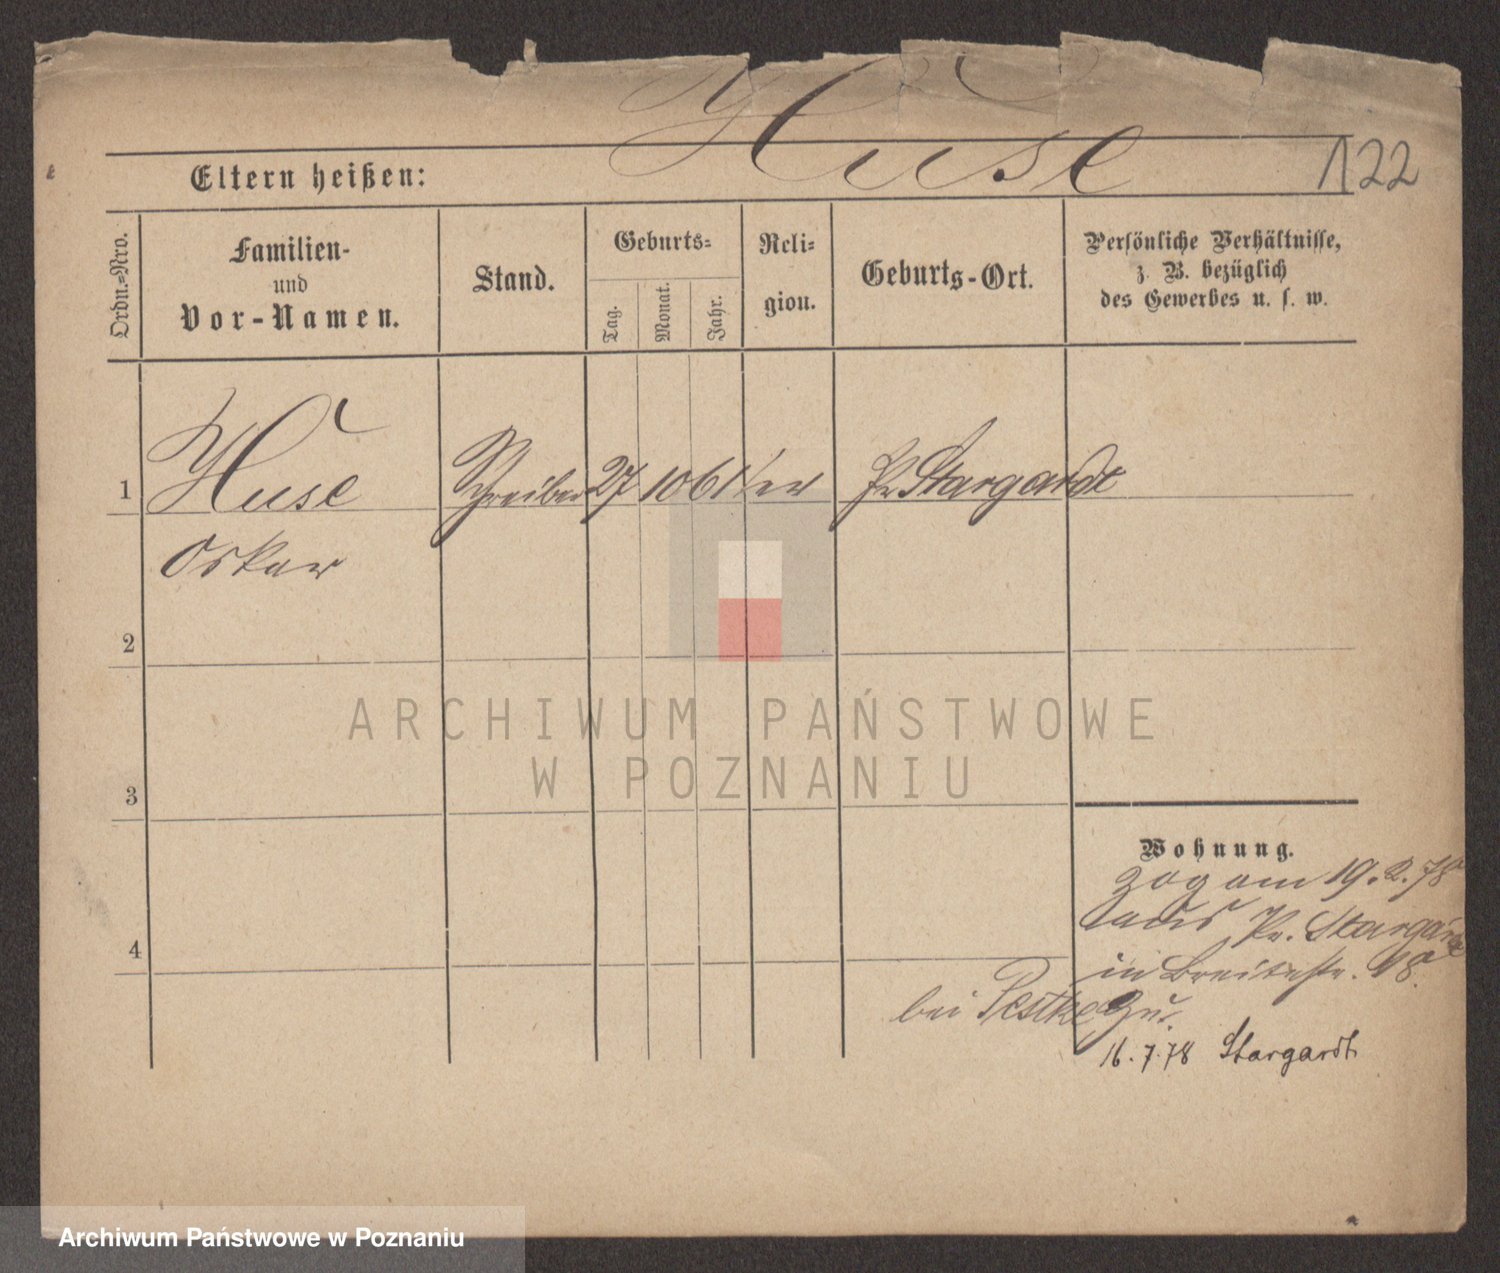 Huse
122
Eltern heißen:
Ordn.=Nro.
Familien-
und
Vor-Namen.
Stand.
Geburts=
Tag.
Monat.
Jahr.
Reli=
gion.
Geburts-Ort.
Persönliche Verhältnisse,
z. B. bezüglich
des Gewerbes u. s. w.
1 Huse Schreiber 27 10 61 Pr Stargardt
Oskar
2
3
4
Wohnung.
zog am 19.2.78
aus Pr. Stargardt
in Breitestr. 18a
bei Pestke zu.
16.7.78 Stargardt
ARCHIWUM PAŃSTWOWE
W POZNANIU
Archiwum Państwowe w Poznaniu